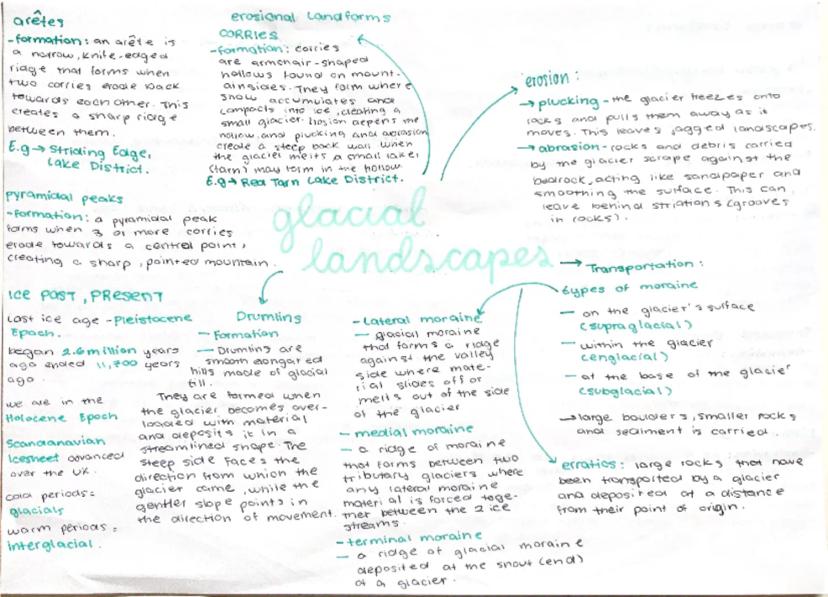 arêtes
-formation: an arête is
a narrow, knife-edged
ridge that forms when
two corries erode back
towards each other. This
creates a sharp ridge
between them.
E.g → Striding Edge,
Lake District.
pyramidal peaks
-formation: a pyramidal peak
forms when 3 or more corries
erode towards a central point,
creating a sharp, pointed mountain.
erosional landforms
CORRIES
-formation: corries
are armchair-shaped
hollows found on mount-
ainsides. They form where
snow accumulates and
compacts into ice, creating a
small glacier. Erosion depens the
hollow, and plucking and abrasion
create a steep back wall when
the glacier melts a small lake,
(tarn) may form in the hollow
E.g → Red Tarn Lake District.
glacial
landscapes
erosion:
→ plucking - the glacier freezes onto
rocks and pulls them away as it
moves. This leaves jagged landscapes.
→ abrasion - rocks and debris carried
by the glacier scrape against the
bedrock, acting like sandpaper and
smoothing the surface. This can
leave behind striations (grooves
in rocks).
ICE PAST, PRESENT
Last ice age - Pleistocene
Epoch.
began 2.6 million years
ago ended 11,700 years
ago.
we are in the
Holocene Epoch
Scandanavian
Icesheet advanced
over the UK.
cold periods =
glacials
warm periods =
interglacial.
Drumlins
- Formation
- Drumlins are
smooth elongated
hills made of glacial
till.
They are formed when
the glacier becomes over-
loaded with material
and deposits it in a
streamlined shape. The
steep side faces the
direction from which the
glacier came, while the
gentler slope points in
the direction of movement.
-Lateral moraine
- glacial moraine
that forms a ridge
against the valley
side where mate-
rial slides off or
melts out of the side
of the glacier
- medial moraine
- a ridge of moraine
that forms between two
tributary glaciers where
any lateral moraine
material is forced toge-
ther between the 2 ice
streams.
-terminal moraine
- a ridge of glacial moraine
deposited at the snout (end)
of a glacier.
→ Transportation:
types of moraine
- on the glacier's surface
(supraglacial)
- within the glacier
(englacial)
- at the base of the glacier
(subglacial)
→ large boulders, smaller rocks
and sediment is carried.
erratics: large rocks that have
been transported by a glacier
and deposited at a distance
from their point of origin.